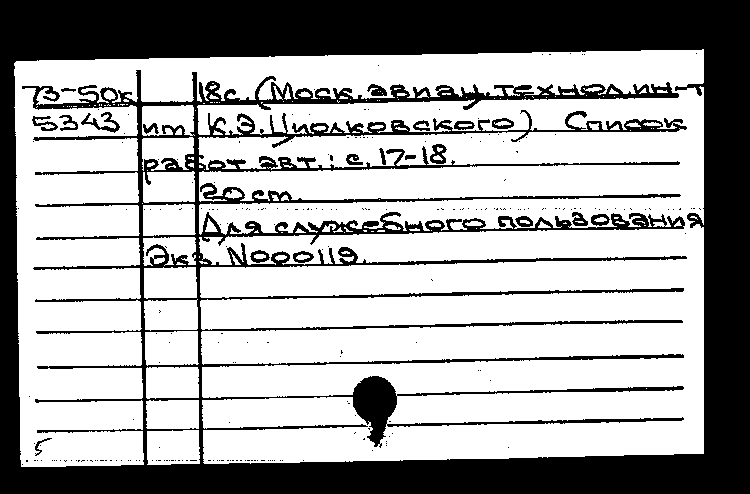 73-50к 18с. (Моск. авиац. технол. ин-т
5343 им. К.Э. Циолковского). Список
работ авт.: с. 17-18.
20 ст.
Для служебного пользования
Экз. N000119.
5